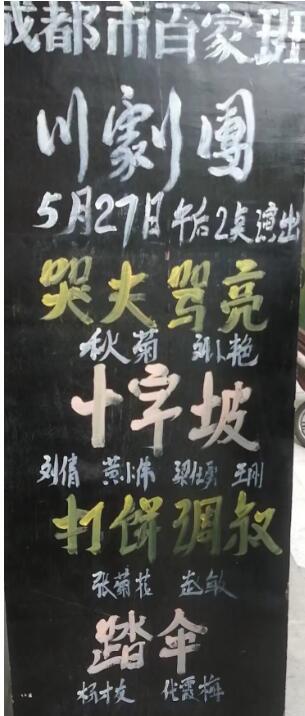 成都市百家班
川劇團
5月27日午后2点演出
哭夫骂亮
秋菊 刘小艳
十字坡
刘倩 黄小伟 王刚
打饼调叔
张菊花 赵敏
踏伞
杨才友 代霞梅